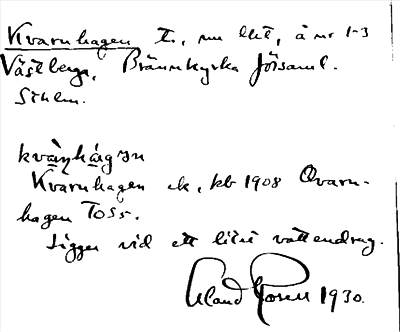 Kvarnhagen t., nu lht, å nr 1-3
Västberga, Brännkyrka församl.
Sthlm.
kvàɳhàgɜn
Kvarnhagen ek, kb 1908 Qvarn-
hagen Toss.
Ligger vid ett litet vattendrag.
Erland Rosell 1930.